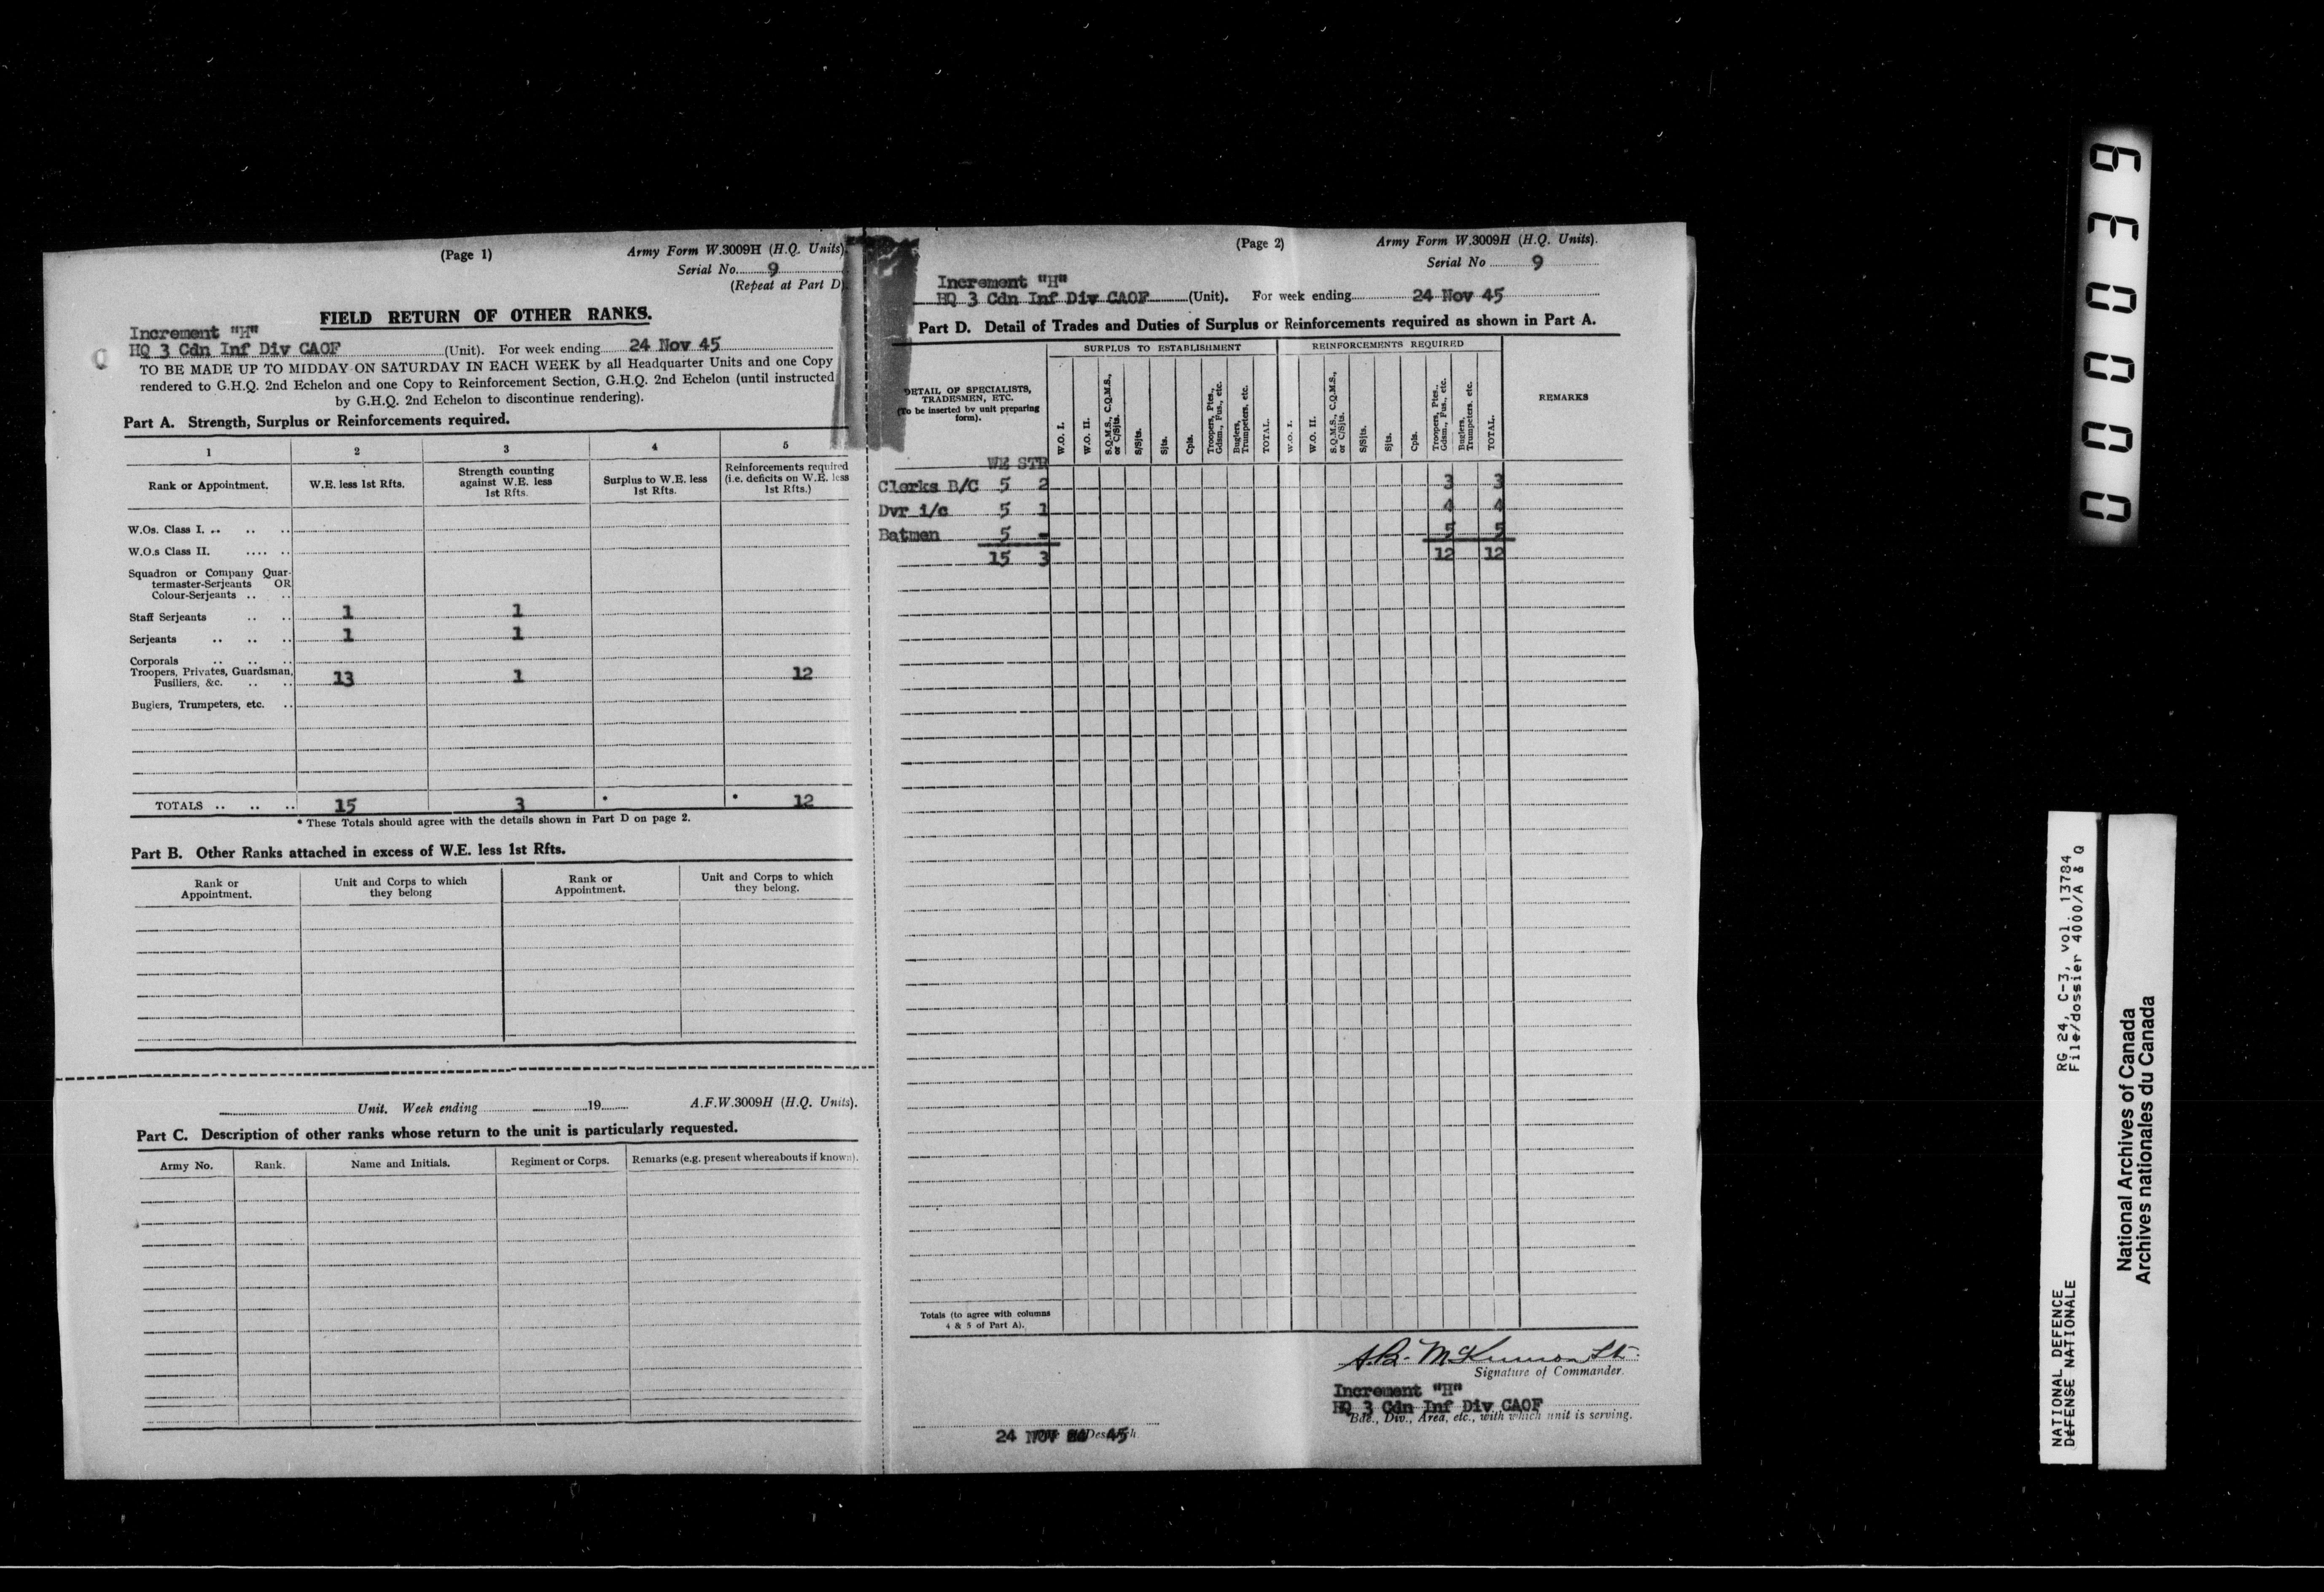 (Page 1)
Army Form W.3009H (H.Q. Units).
Serial No. 9
(Repeat at Part D)
FIELD RETURN OF OTHER RANKS.
Increment "H"
HQ 3 Cdn Inf Div CAOF (Unit). For week ending 24 Nov 45
TO BE MADE UP TO MIDDAY ON SATURDAY IN EACH WEEK by all Headquarter Units and one Copy
rendered to G.H.Q. 2nd Echelon and one Copy to Reinforcement Section, G.H.Q. 2nd Echelon (until instructed
by G.H.Q. 2nd Echelon to discontinue rendering).
Part A. Strength, Surplus or Reinforcements required.
1 2 3 4 5
Rank or Appointment.
W.E. less 1st Rfts.
Strength counting
against W.E. less
1st Rfts.
Surplus to W.E. less
1st Rfts.
Reinforcements required
(i.e. deficits on W.E. less
1st Rfts.)
W.Os. Class I. .. .. ..
W.O.s Class II. .... ..
Squadron or Company Quar-
termaster-Serjeants OR
Colour-Serjeants .. ..
Staff Serjeants .. .. 1 1
Serjeants .. .. .. 1 1
Corporals .. .. ..
Troopers, Privates, Guardsman,
Fusiliers, &c. .. .. 13 1 12
Buglers, Trumpeters, etc. ..
TOTALS .. .. .. 15 3 * * 12
* These Totals should agree with the details shown in Part D on page 2.
Part B. Other Ranks attached in excess of W.E. less 1st Rfts.
Rank or
Appointment.
Unit and Corps to which
they belong
Rank or
Appointment.
Unit and Corps to which
they belong.
Unit. Week ending 19 A.F.W.3009H (H.Q. Units).
Part C. Description of other ranks whose return to the unit is particularly requested.
Army No. Rank. Name and Initials. Regiment or Corps. Remarks (e.g. present whereabouts if known).
(Page 2)
Army Form W.3009H (H.Q. Units).
Serial No 9
Increment "H"
HQ 3 Cdn Inf Div CAOF (Unit). For week ending 24 Nov 45
Part D. Detail of Trades and Duties of Surplus or Reinforcements required as shown in Part A.
SURPLUS TO ESTABLISHMENT REINFORCEMENTS REQUIRED
DETAIL OF SPECIALISTS,
TRADESMEN, ETC.
(To be inserted by unit preparing
form).
W.O. I.
W.O. II.
S.Q.M.S., C.Q.M.S.,
or C/Sjts.
S/Sjts.
Sjts.
Cpls.
Troopers, Ptes.,
Gdsm., Fus., etc.
Buglers,
Trumpeters, etc.
TOTAL.
W.O. I.
W.O. II.
S.Q.M.S., C.Q.M.S.,
or C/Sjts.
S/Sjts.
Sjts.
Cpls.
Troopers, Ptes.,
Gdsm., Fus., etc.
Buglers,
Trumpeters, etc.
TOTAL.
REMARKS
WE STR
Clerks B/C 5 2 3 3
Dvr i/c 5 1 4 4
Batmen 5 - 5 5
15 3 12 12
Totals (to agree with columns
4 & 5 of Part A).
A.B. McKinnon Lt.
Signature of Commander.
Increment "H"
HQ 3 Cdn Inf Div CAOF
Bde., Div., Area, etc., with which unit is serving.
24 NOV 45
000039
RG 24, C-3, vol. 13784
File/dossier 4000/A & Q
NATIONAL DEFENCE
DÉFENSE NATIONALE
National Archives of Canada
Archives nationales du Canada